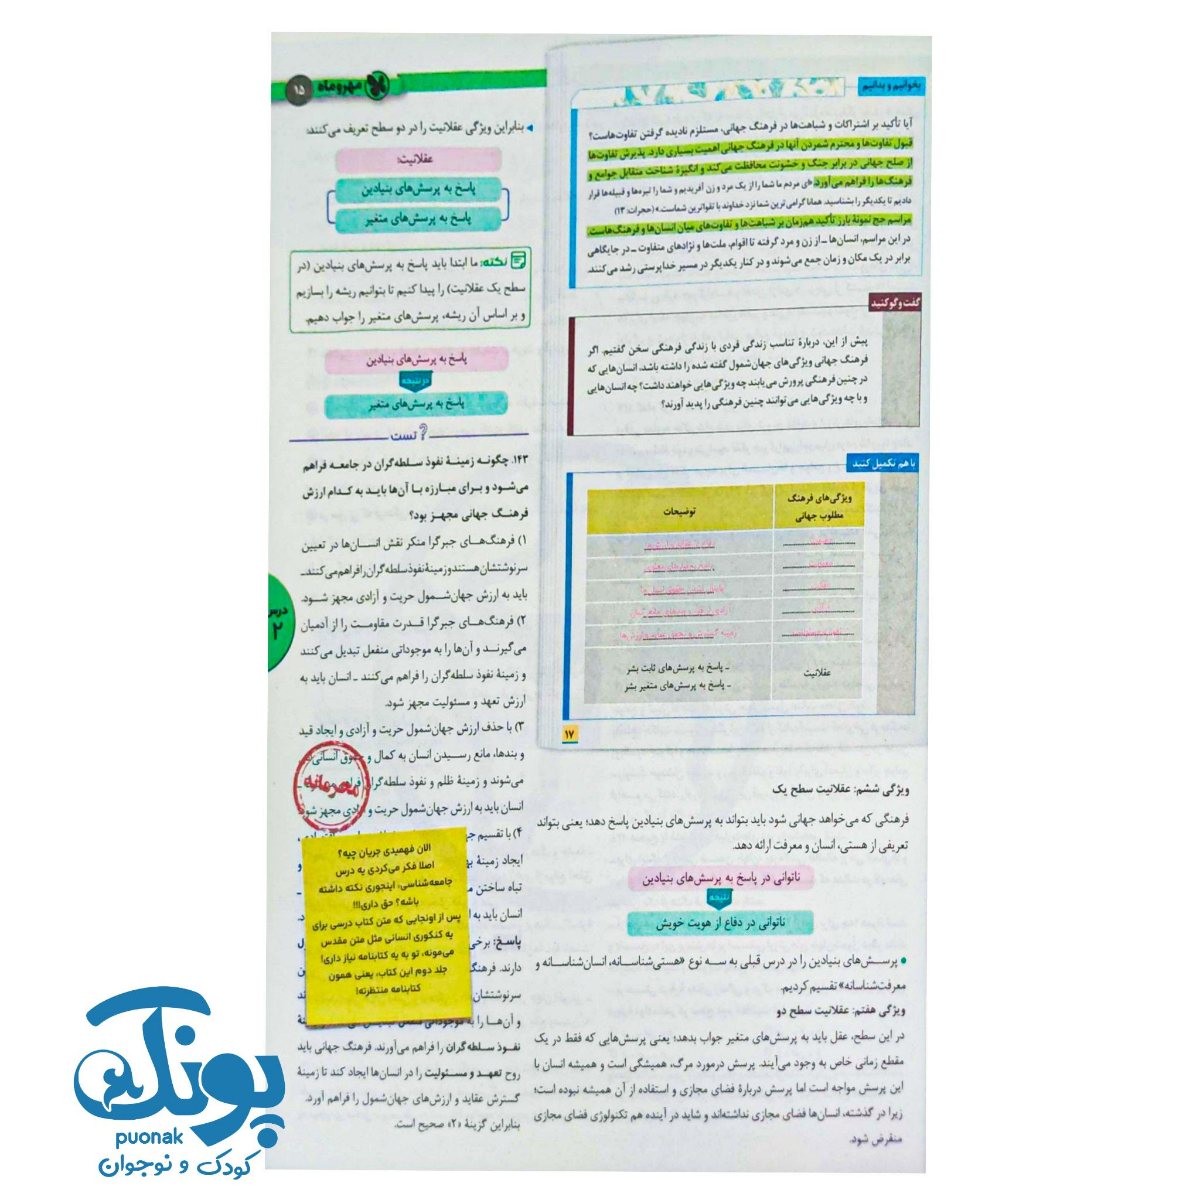 بخوانیم و بدانیم
آیا تأکید بر اشتراکات و شباهت‌ها در فرهنگ جهانی، مستلزم نادیده گرفتن تفاوت‌هاست؟
قبول تفاوت‌ها و محترم شمردن آنها در فرهنگ جهانی اهمیت بسیاری دارد. پذیرش تفاوت‌ها
از صلح جهانی در برابر جنگ و خشونت محافظت می‌کند و انگیزهٔ شناخت متقابل جوامع و
فرهنگ‌ها را فراهم می‌آورد. «ای مردم ما شما را از یک مرد و زن آفریدیم و شما را تیره‌ها و قبیله‌ها قرار
دادیم تا یکدیگر را بشناسید. همانا گرامی ترین شما نزد خداوند با تقواترین شماست.» (حجرات: ۱۳)
مراسم حج نمونهٔ بارز تأکید هم‌زمان بر شباهت‌ها و تفاوت‌های میان انسان‌ها و فرهنگ‌هاست.
در این مراسم، انسان‌ها ـ از زن و مرد گرفته تا اقوام، ملت‌ها و نژادهای متفاوت ـ در جایگاهی
برابر در یک مکان و زمان جمع می‌شوند و در کنار یکدیگر در مسیر خداپرستی رشد می‌کنند.
گفت و گو کنید
پیش از این، دربارهٔ تناسب زندگی فردی با زندگی فرهنگی سخن گفتیم. اگر
فرهنگ جهانی ویژگی‌های جهان‌شمول گفته شده را داشته باشد، انسان‌هایی که
در چنین فرهنگی پرورش می‌یابند چه ویژگی‌هایی خواهند داشت؟ چه انسان‌هایی
و با چه ویژگی‌هایی می‌توانند چنین فرهنگی را پدید آورند؟
با هم تکمیل کنید
ویژگی‌های فرهنگ مطلوب جهانی
توضیحات
عقلانیت
ـ پاسخ به پرسش‌های ثابت بشر
ـ پاسخ به پرسش‌های متغیر بشر
۱۷
ویژگی ششم: عقلانیت سطح یک
فرهنگی که می‌خواهد جهانی شود باید بتواند به پرسش‌های بنیادین پاسخ دهد؛ یعنی بتواند
تعریفی از هستی، انسان و معرفت ارائه دهد.
ناتوانی در پاسخ به پرسش‌های بنیادین
نتیجه
ناتوانی در دفاع از هویت خویش
• پرسش‌های بنیادین را در درس قبلی به سه نوع «هستی‌شناسانه، انسان‌شناسانه و
معرفت‌شناسانه» تقسیم کردیم.
ویژگی هفتم: عقلانیت سطح دو
در این سطح، عقل باید به پرسش‌های متغیر جواب بدهد؛ یعنی پرسش‌هایی که فقط در یک
مقطع زمانی خاص به وجود می‌آیند. پرسش درمورد مرگ، همیشگی است و همیشه انسان با
این پرسش مواجه است اما پرسش دربارهٔ فضای مجازی و استفاده از آن همیشه نبوده است؛
زیرا در گذشته، انسان‌ها فضای مجازی نداشته‌اند و شاید در آینده هم تکنولوژی فضای مجازی
منقرض شود.
مهروماه
۱۵
◂ بنابراین ویژگی عقلانیت را در دو سطح تعریف می‌کنند:
عقلانیت:
پاسخ به پرسش‌های بنیادین
پاسخ به پرسش‌های متغیر
نکته: ما ابتدا باید پاسخ به پرسش‌های بنیادین (در
سطح یک عقلانیت) را پیدا کنیم تا بتوانیم ریشه را بسازیم
و بر اساس آن ریشه، پرسش‌های متغیر را جواب دهیم.
پاسخ به پرسش‌های بنیادین
در نتیجه
پاسخ به پرسش‌های متغیر
تست
۱۴۳. چگونه زمینهٔ نفوذ سلطه‌گران در جامعه فراهم
می‌شود و برای مبارزه با آن‌ها باید به کدام ارزش
فرهنگ جهانی مجهز بود؟
۱) فرهنگ‌های جبرگرا منکر نقش انسان‌ها در تعیین
سرنوشتشان هستند و زمینهٔ نفوذ سلطه‌گران را فراهم می‌کنند ـ
باید به ارزش جهان‌شمول حریت و آزادی مجهز شود.
۲) فرهنگ‌های جبرگرا قدرت مقاومت را از آدمیان
می‌گیرند و آن‌ها را به موجوداتی منفعل تبدیل می‌کنند
و زمینهٔ نفوذ سلطه‌گران را فراهم می‌کنند ـ انسان باید به
ارزش تعهد و مسئولیت مجهز شود.
۳) با حذف ارزش جهان‌شمول حریت و آزادی و ایجاد قید
و بندها، مانع رسیدن انسان به کمال و حقوق انسانی
می‌شوند و زمینهٔ ظلم و نفوذ سلطه‌گران
انسان باید به ارزش جهان‌شمول حریت و آزادی مجهز شود.
محرمانه
۴) با تقسیم
ایجاد زمینهٔ
تباه ساختن
انسان باید به
پاسخ: برخی
دارند. فرهنگ
سرنوشتشان
و آن‌ها را به موجوداتی
نفوذ سلطه‌گران را فراهم می‌آورند. فرهنگ جهانی باید
روح تعهد و مسئولیت را در انسان‌ها ایجاد کند تا زمینهٔ
گسترش عقاید و ارزش‌های جهان‌شمول را فراهم آورد.
بنابراین گزینهٔ «۲» صحیح است.
الان فهمیدی جریان چیه؟
اصلا فکر می‌کردی یه درس
جامعه‌شناسی، اینجوری نکته داشته
باشه؟ حق داری!!!
پس از اونجایی که متن کتاب درسی برای
یه کنکوری انسانی مثل متن مقدس
می‌مونه، تو به یه کتابنامه نیاز داری!
جلد دوم این کتاب، یعنی همون
کتابنامه منتظرته!
درس
۲
پونک
puonak
کودک و نوجوان